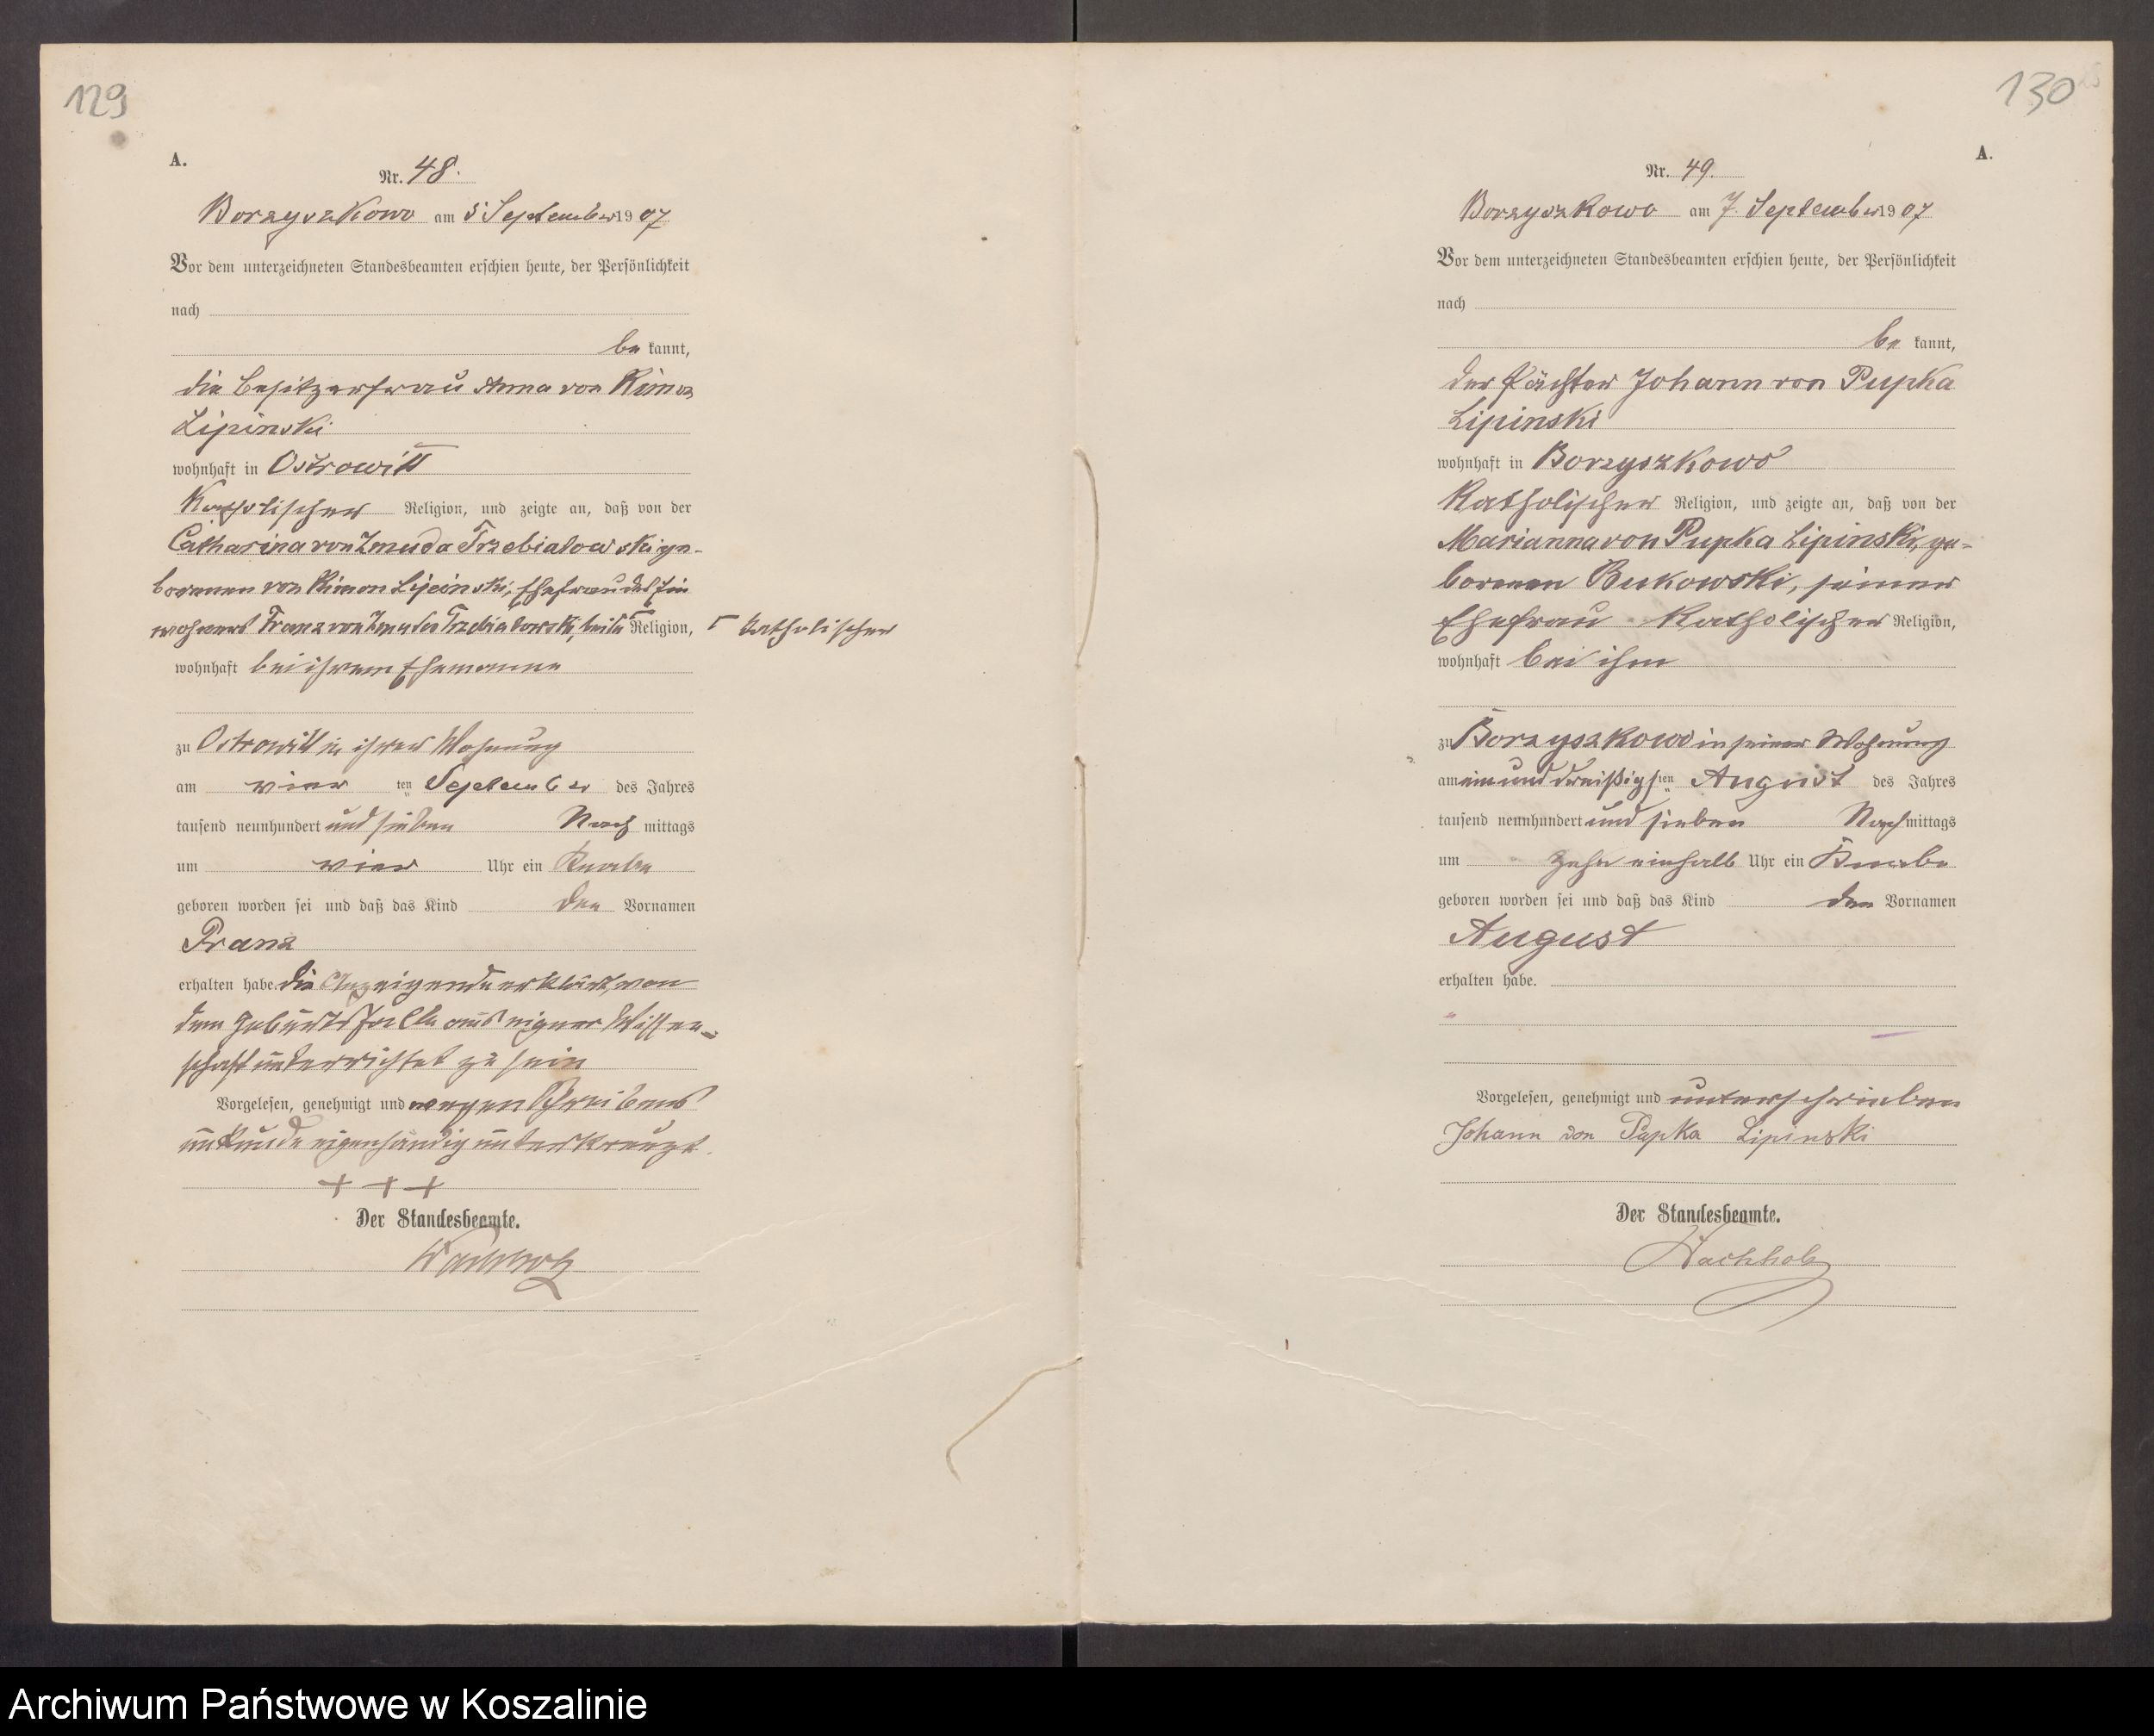 129
A.
Nr. 48.
Borzyszkowo am 5 September 1907
Vor dem unterzeichneten Standesbeamten erschien heute, der Persönlichkeit
nach
be kannt,
die Besitzerfrau Anna von Rimon
Lipinski
wohnhaft in Ostrowitt
Katholischer Religion, und zeigte an, daß von der
Catharina von Zmuda Trzebiatowski ge-
borenen von Rimon Lipinski, Ehefrau des Ein
wohners Franz von Zmuda Trzebiatowski, beide Religion, Γ katholischer
wohnhaft bei ihrem Ehemanne
zu Ostrowitt in ihrer Wohnung
am vier ten September des Jahres
tausend neunhundert und sieben Nach mittags
um vier Uhr ein Knabe
geboren worden sei und daß das Kind den Vornamen
Franz
erhalten habe. Die Anzeigende erklärt, von
dem Geburtsfalle aus eigner Wissen-
schaft unterrichtet zu sein
Vorgelesen, genehmigt und wegen Schreibens
unkunde eigenhändig unterkreuzt.
+ + +
Der Standesbeamte.
Wachholz
130
A.
Nr. 49.
Borzyszkowo am 7. September 1907
Vor dem unterzeichneten Standesbeamten erschien heute, der Persönlichkeit
nach
be kannt,
der Pächter Johann von Pupka
Lipinski
wohnhaft in Borzyszkowo
Katholischer Religion, und zeigte an, daß von der
Marianna von Pupka Lipinski, ge-
borenen Bukowski, seiner
Ehefrau Katholischer Religion,
wohnhaft bei ihm
zu Borzyszkowo in seiner Wohnung
am ein und dreißigs ten August des Jahres
tausend neunhundert und sieben Nach mittags
um zehn einhalb Uhr ein Knabe
geboren worden sei und daß das Kind den Vornamen
August
erhalten habe.
Vorgelesen, genehmigt und unterschrieben
Johann von Pupka Lipinski
Der Standesbeamte.
Wachholz
Archiwum Państwowe w Koszalinie